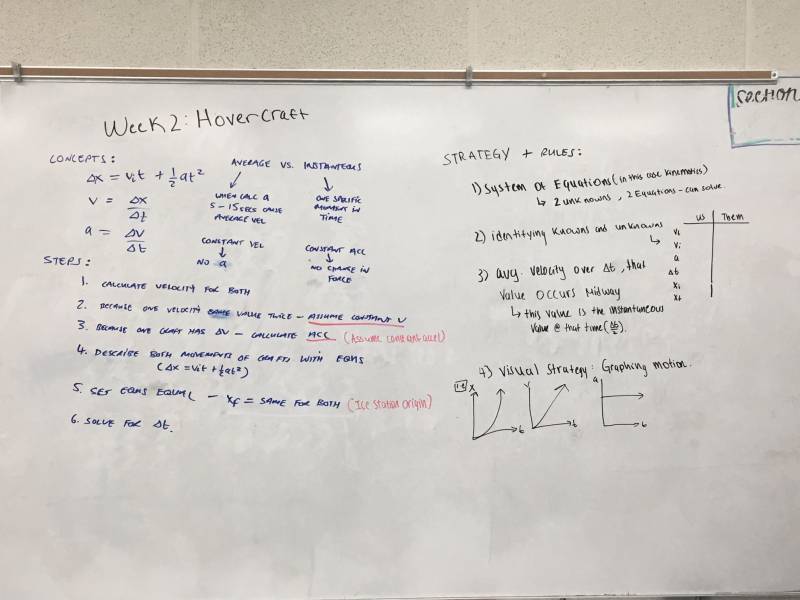 Week 2: Hovercraft
CONCEPTS:
Δx = vit + 1/2 at²
V = Δx/Δt
a = ΔV/Δt
AVERAGE VS. INSTANTEOUS
↓ WHEN CALC a
5-15 SECS CAUSE
AVERAGE VEL
↓ ONE SPECIFIC
MOMENT IN
TIME
CONSTANT VEL
↓
NO a
CONSTANT ACC
↓
NO CHANGE IN
FORCE
STEPS:
1. CALCULATE VELOCITY FOR BOTH
2. BECAUSE ONE VELOCITY SAME VALUE TWICE - ASSUME CONSTANT V
3. BECAUSE ONE CRAFT HAS ΔV - CALCULATE ACC (Assume constant accel)
4. DESCRIBE BOTH MOVEMENTS OF CRAFTS WITH EQNS
(Δx = vit + 1/2 at²)
5. SET EQNS EQUAL - xf = SAME FOR BOTH (Ice Station Origin)
6. SOLVE FOR Δt.
Section
STRATEGY + RULES:
1) System of Equations (in this case kinematics)
↳ 2 unknowns, 2 Equations - can solve.
2) identifying Knowns and unknowns
↳
US Them
Vf
Vi
a
Δt
Xi
Xf
3) avg. velocity over Δt, that
Value OCCURS Midway
↳ this value is the instantaneous
Value @ that time (Δt/2).
4) Visual Strategy: Graphing motion.
X t
V t
a t